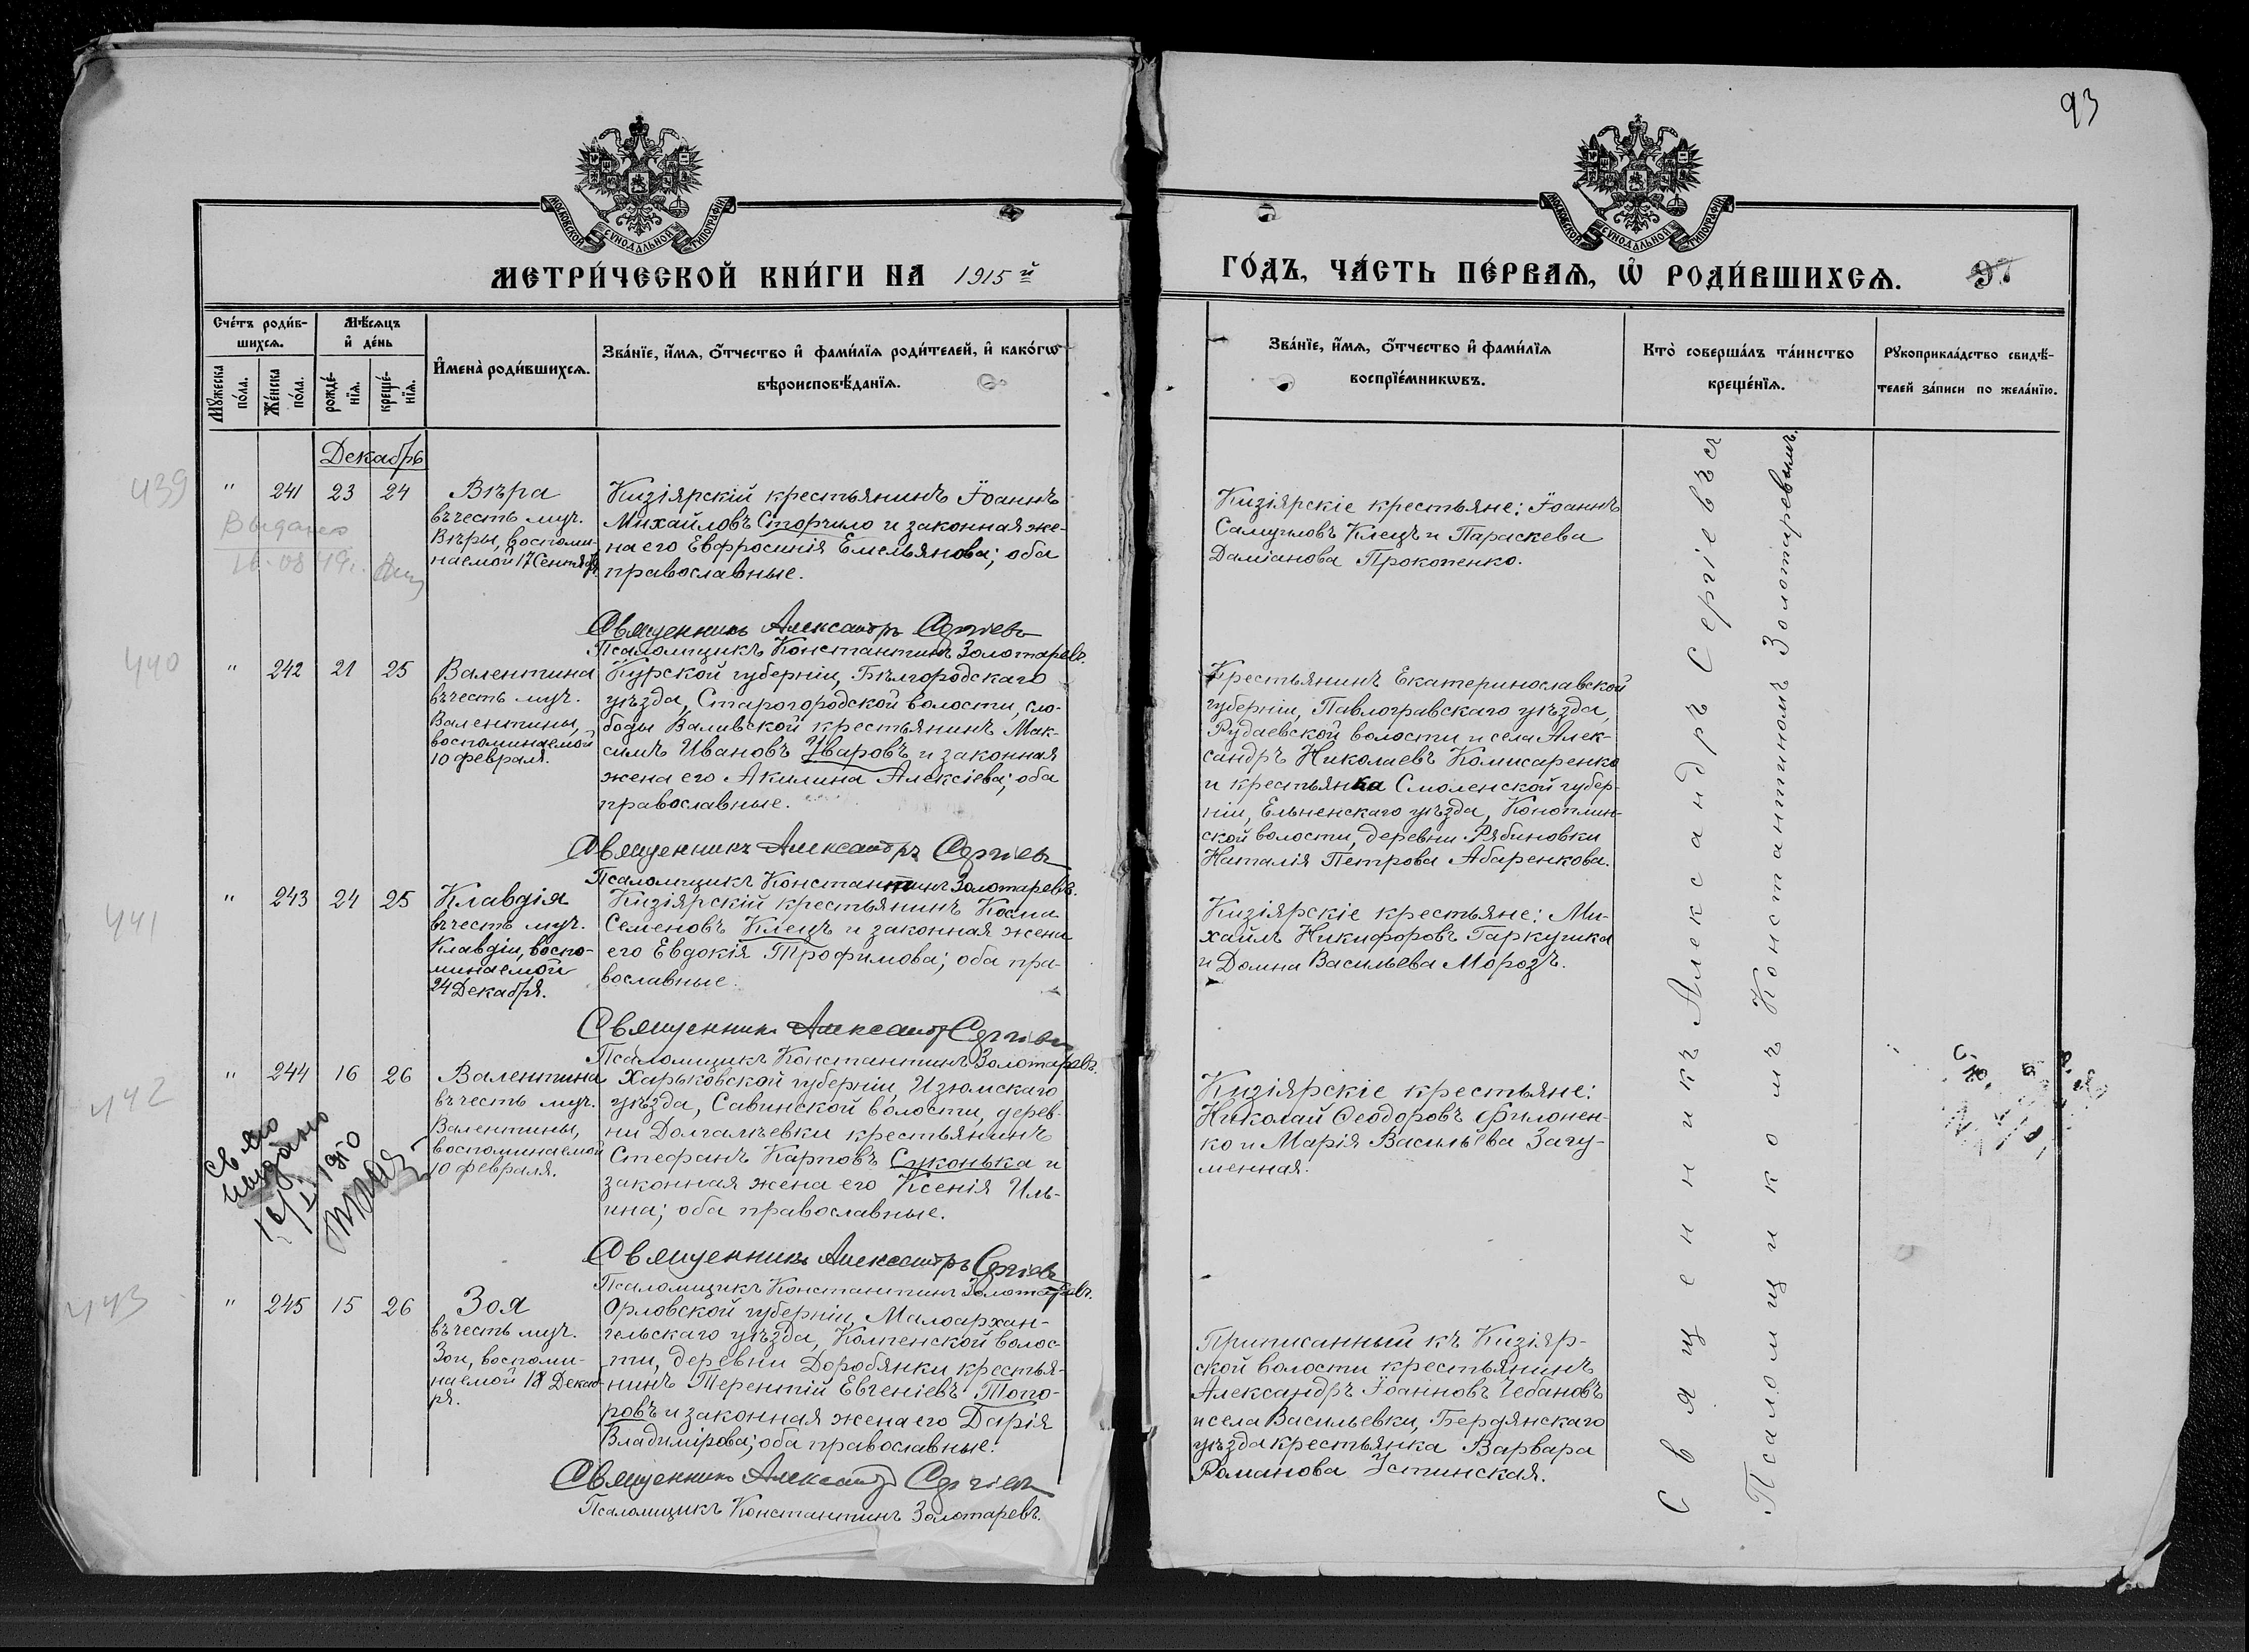 93
МОСКОВСКОЙ СѴНОДАЛЬНОЙ ТИПОГРАФІИ
МОСКОВСКОЙ СѴНОДАЛЬНОЙ ТИПОГРАФІИ
МЕТРИ́ЧЕСКОЙ КНИ́ГИ НА 1915й
ГО́ДЪ, ЧА́СТЬ ПЕ́РВАѦ, Ѡ҆ РОДИ́ВШИХСѦ.
Сче́тъ роди́в-
шихсѧ.
Мѣ́сѧцъ
и҆ де́нь
Мꙋ́жеска
по́ла.
Же́нска
по́ла.
рожде́-
нїѧ.
креще́-
нїѧ.
И҆мена̀ роди́вшихсѧ.
Зва́нїе, и҆́мѧ, ѻ҆́тчество и҆ фами́лїѧ роди́телей, и҆ како́гѡ
вѣроисповѣ́данїѧ.
Зва́нїе, и҆́мѧ, ѻ҆́тчество и҆ фами́лїѧ
воспрїе́мникѡвъ.
Кто̀ соверша́лъ та́инство
креще́нїѧ.
Рꙋкоприкла́дство свидѣ́-
телей за́писи по жела́нїю.
Декабрь
439
" 241 23 24
Вѣра
въ честь муч.
Вѣры, воспоми-
наемой 17 Сентябр.
Выдано
Кизіярскій крестьянинъ Іоаннъ
Михайловъ Сторчило и законная же-
на его Евфросинія Емельянова; оба
православные.
Священникъ Александръ Сергіевъ
Псаломщикъ Константинъ Золотаревъ.
Кизіярскіе крестьяне: Іоаннъ
Самуиловъ Клецъ и Параскева
Даміанова Прокопенко.
440
" 242 21 25
Валентина
въ честь муч.
Валентины,
воспоминаемой
10 февраля.
Курской губерніи, Бѣлгородскаго
уѣзда, Старогородской волости, сло-
боды Валивской крестьянинъ Мак-
симъ Ивановъ Уваровъ и законная
жена его Акилина Алексіева; оба
православные.
Священникъ Александръ Сергіевъ
Псаломщикъ Константинъ Золотаревъ.
Крестьянинъ Екатеринославской
губерніи, Павлогравскаго уѣзда,
Рудаевской волости и села Алек-
сандръ Николаевъ Комисаренко
и крестьянка Смоленской губер-
ніи, Ельненскаго уѣзда, Коноплин-
ской волости, деревни Рябиновки
Наталія Петрова Абаренкова.
441
" 243 24 25
Клавдія
въ честь муч.
Клавдіи, воспо-
минаемой
24 Декабря.
Кизіярскій крестьянинъ Косма
Семеновъ Клецъ и законная жена
его Евдокія Трофимова; оба пра-
вославные.
Священникъ Александръ Сергіевъ
Псаломщикъ Константинъ Золотаревъ.
Кизіярскіе крестьяне: Ми-
хаилъ Никифоровъ Гаркушка
и Домна Васильева Морозъ.
442
" 244 16 26
Валентина
въ честь муч.
Валентины,
воспоминаемой
10 февраля.
выдано
Харьковской губерніи, Изюмскаго
уѣзда, Савинской волости, дерев-
ни Долгалѣевки крестьянинъ
Стефанъ Карповъ Суконька и
законная жена его Ксенія Иль-
ина; оба православные.
Священникъ Александръ Сергіевъ
Псаломщикъ Константинъ Золотаревъ.
Кизіярскіе крестьяне:
Николай Ѳеодоровъ Филонен-
ко и Марія Васильева Загу-
менная.
443
" 245 15 26
Зоя
въ честь муч.
Зои, воспоми-
наемой 18 Декаб-
ря.
Орловской губерніи, Малоархан-
гельскаго уѣзда, Колпенской волос-
ти, деревни Доробянки крестья-
нинъ Терентій Евгеніевъ Топо-
ровъ и законная жена его Дарія
Владимірова; оба православные.
Священникъ Александръ Сергіевъ
Псаломщикъ Константинъ Золотаревъ.
Приписанный къ Кизіяр-
ской волости крестьянинъ
Александръ Іоанновъ Чебановъ
и села Васильевки, Бердянскаго
уѣзда крестьянка Варвара
Романова Устинская.
Священникъ Александръ Сергіевъ съ
Псаломщикомъ Константиномъ Золотаревымъ.